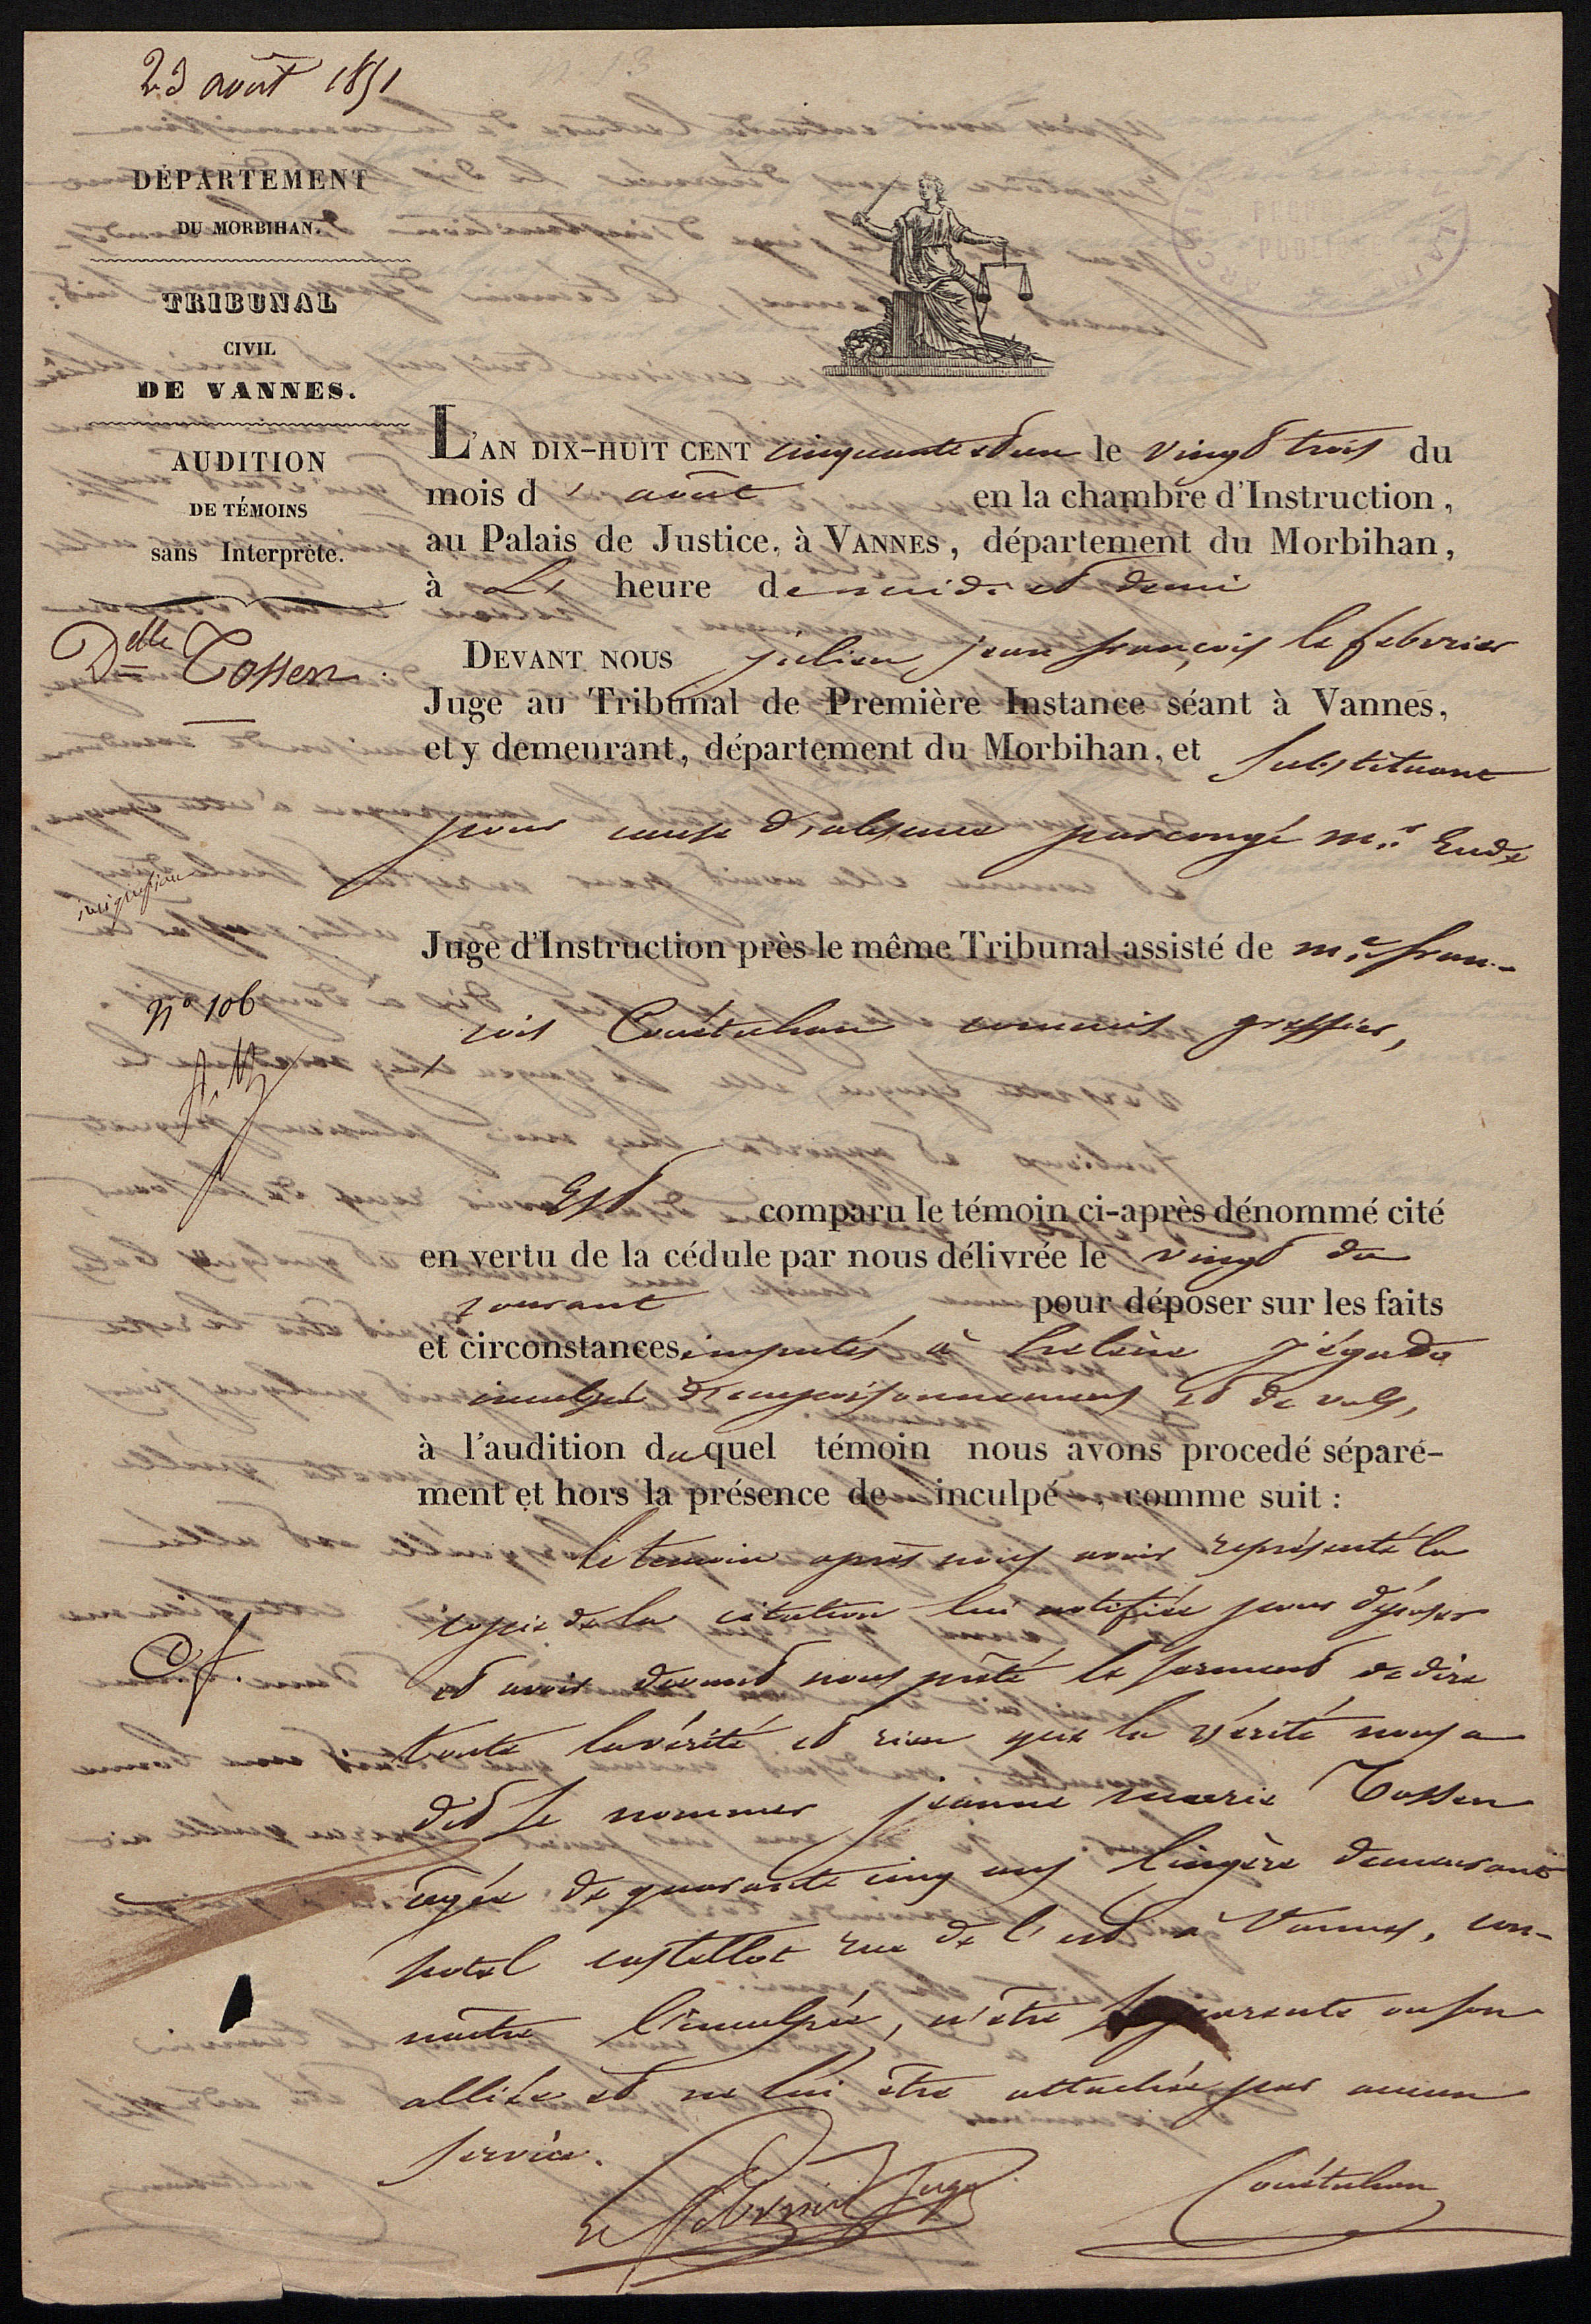 23 août 1851
DÉPARTEMENT
DU MORBIHAN.
TRIBUNAL
CIVIL
DE VANNES.
AUDITION
DE TÉMOINS
sans Interprète.
Delle Tossen.
n° 106
L'AN DIX-HUIT CENT cinquante et un le vingt trois du
mois d' août en la chambre d'Instruction,
au Palais de Justice, à VANNES, département du Morbihan,
à L' heure de midi et demi
DEVANT NOUS julien jean françois le febvrier
Juge au Tribunal de Première Instance séant à Vannes,
et y demeurant, département du Morbihan, et substituant
pour cause d'absence par congé mr. Eude
Juge d'Instruction près le même Tribunal assisté de me. fran-
çois Couétuhan commis greffier,
Est comparu le témoin ci-après dénommé cité
en vertu de la cédule par nous délivrée le vingt du
courant pour déposer sur les faits
et circonstances imputés à helène jégado
inculpée d'empoisonnements et de vols,
à l'audition duquel témoin nous avons procedé séparé-
ment et hors la présence de inculpé, comme suit :
le temoin après nous avoir représenté la
copie de la citation lui notifiée pour déposer
et avoir devant nous prêté le serment de dire
toute la vérité et rien que la vérité nous a
dit se nommer jeanne marie Tossen
agée de quarante cinq ans lingère demeurant
hotel castellot rue de l'est à Vannes, con-
naitre l'inculpée, n'être sa parente ou son
alliée et ne lui être attachée par aucun
service.
C.f.
le febvrier Juge
Couétuhan